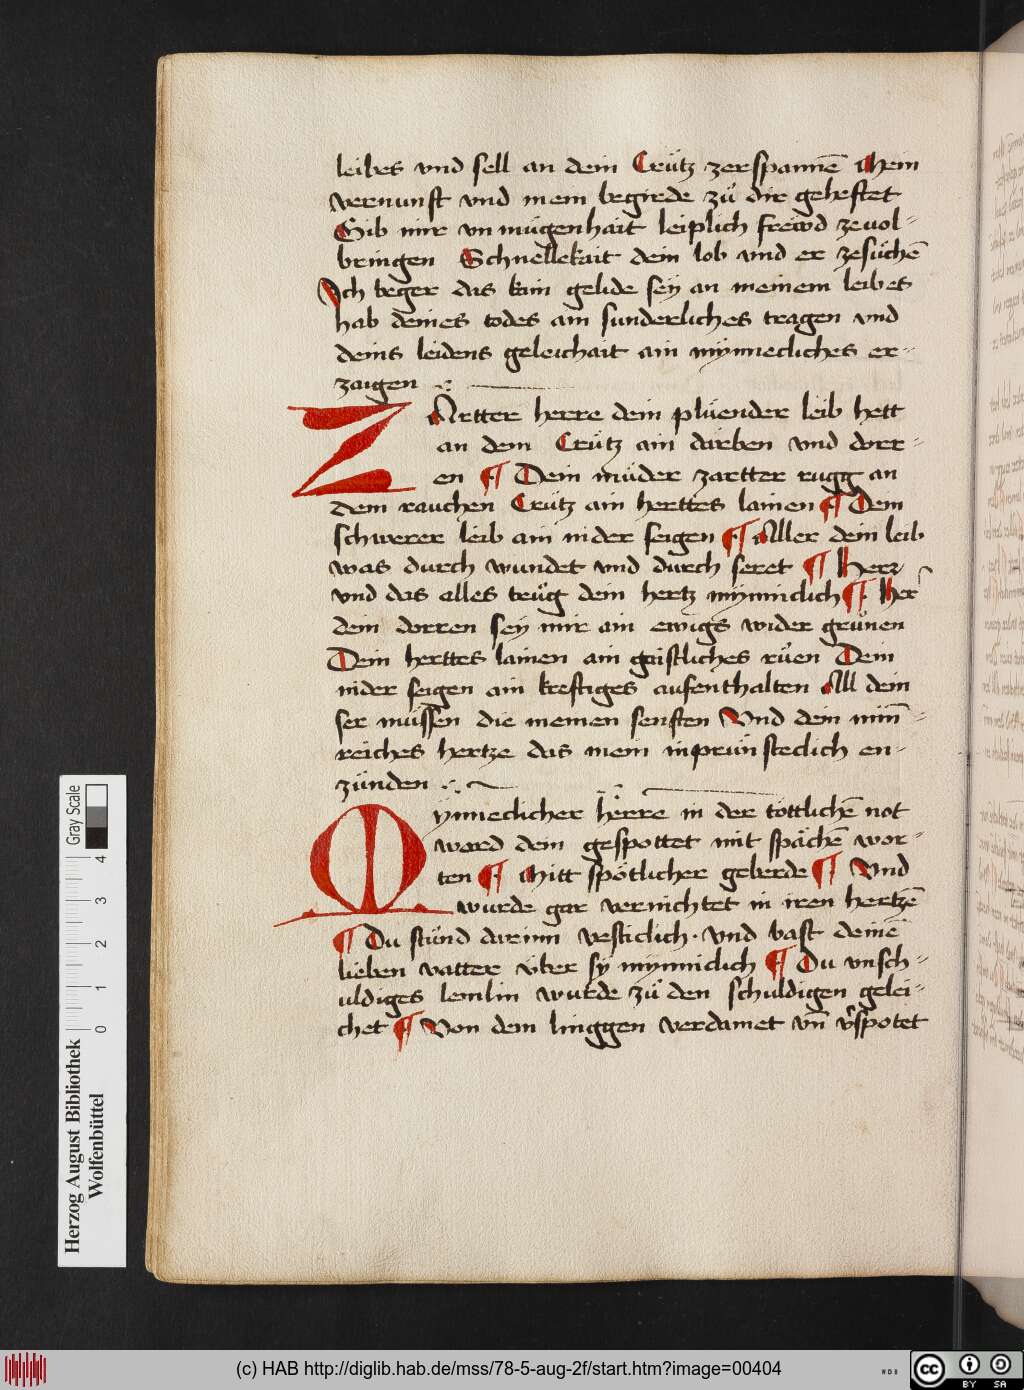 leibes vnd sell an dein Crütz zerspannē Mein
vernunft vnd mein begirde zů dir geheftet
Gib mir vnmügenhait leiplich frewd zeuol-
bringen Schnellekait dein lob vnd er zesüchē
Ich beger das kain gelide sey an meinem leibes
hab deines todes ain sunderliches tragen vnd
deins leidens geleichait ain mynnecliches er-
zaigen
ZArtter herre dein plüender leib hett
an dem Crütz ain darben vnd dorr-
en ¶ Dein müder zartter rugg an
dem rauchen Crütz ain herttes lainen ¶ Dein
schwerer leib ain nider seigen ¶ Aller dein leib
was durch wundet vnd durch seret ¶ Herz
vnd das alles trůg dein hertz mynniclich ¶ Her
dein dorren sey mir ain ewigs wider grünen
Dein herttes lainen ain gaistliches růen Dein
nider seigen ain kreftiges aufenthalten All dein
ser müssen die meinen senften Vnd dein min̄-
reiches hertze das mein inprünsteclich en-
zünden
Mynneclicher herre in der töttlichē not
ward dein gespottet mit spächē wor-
ten ¶ Mitt spötlicher geberde ¶ Vnd
wurde gar vernichtet in iren hertzē
¶ Du stůnd darinn vesticlich · vnd bast deinē
lieben vatter vber sy mynniclich ¶ Du vnsch-
uldiges lemlin wurde zů den schuldigen gelei-
chet ¶ Von dem linggen verdamet vn̄ v̄spotet
Herzog August Bibliothek
Wolfenbüttel
Gray Scale
0 1 2 3 4
(c) HAB http://diglib.hab.de/mss/78-5-aug-2f/start.htm?image=00404
WDB
cc BY SA